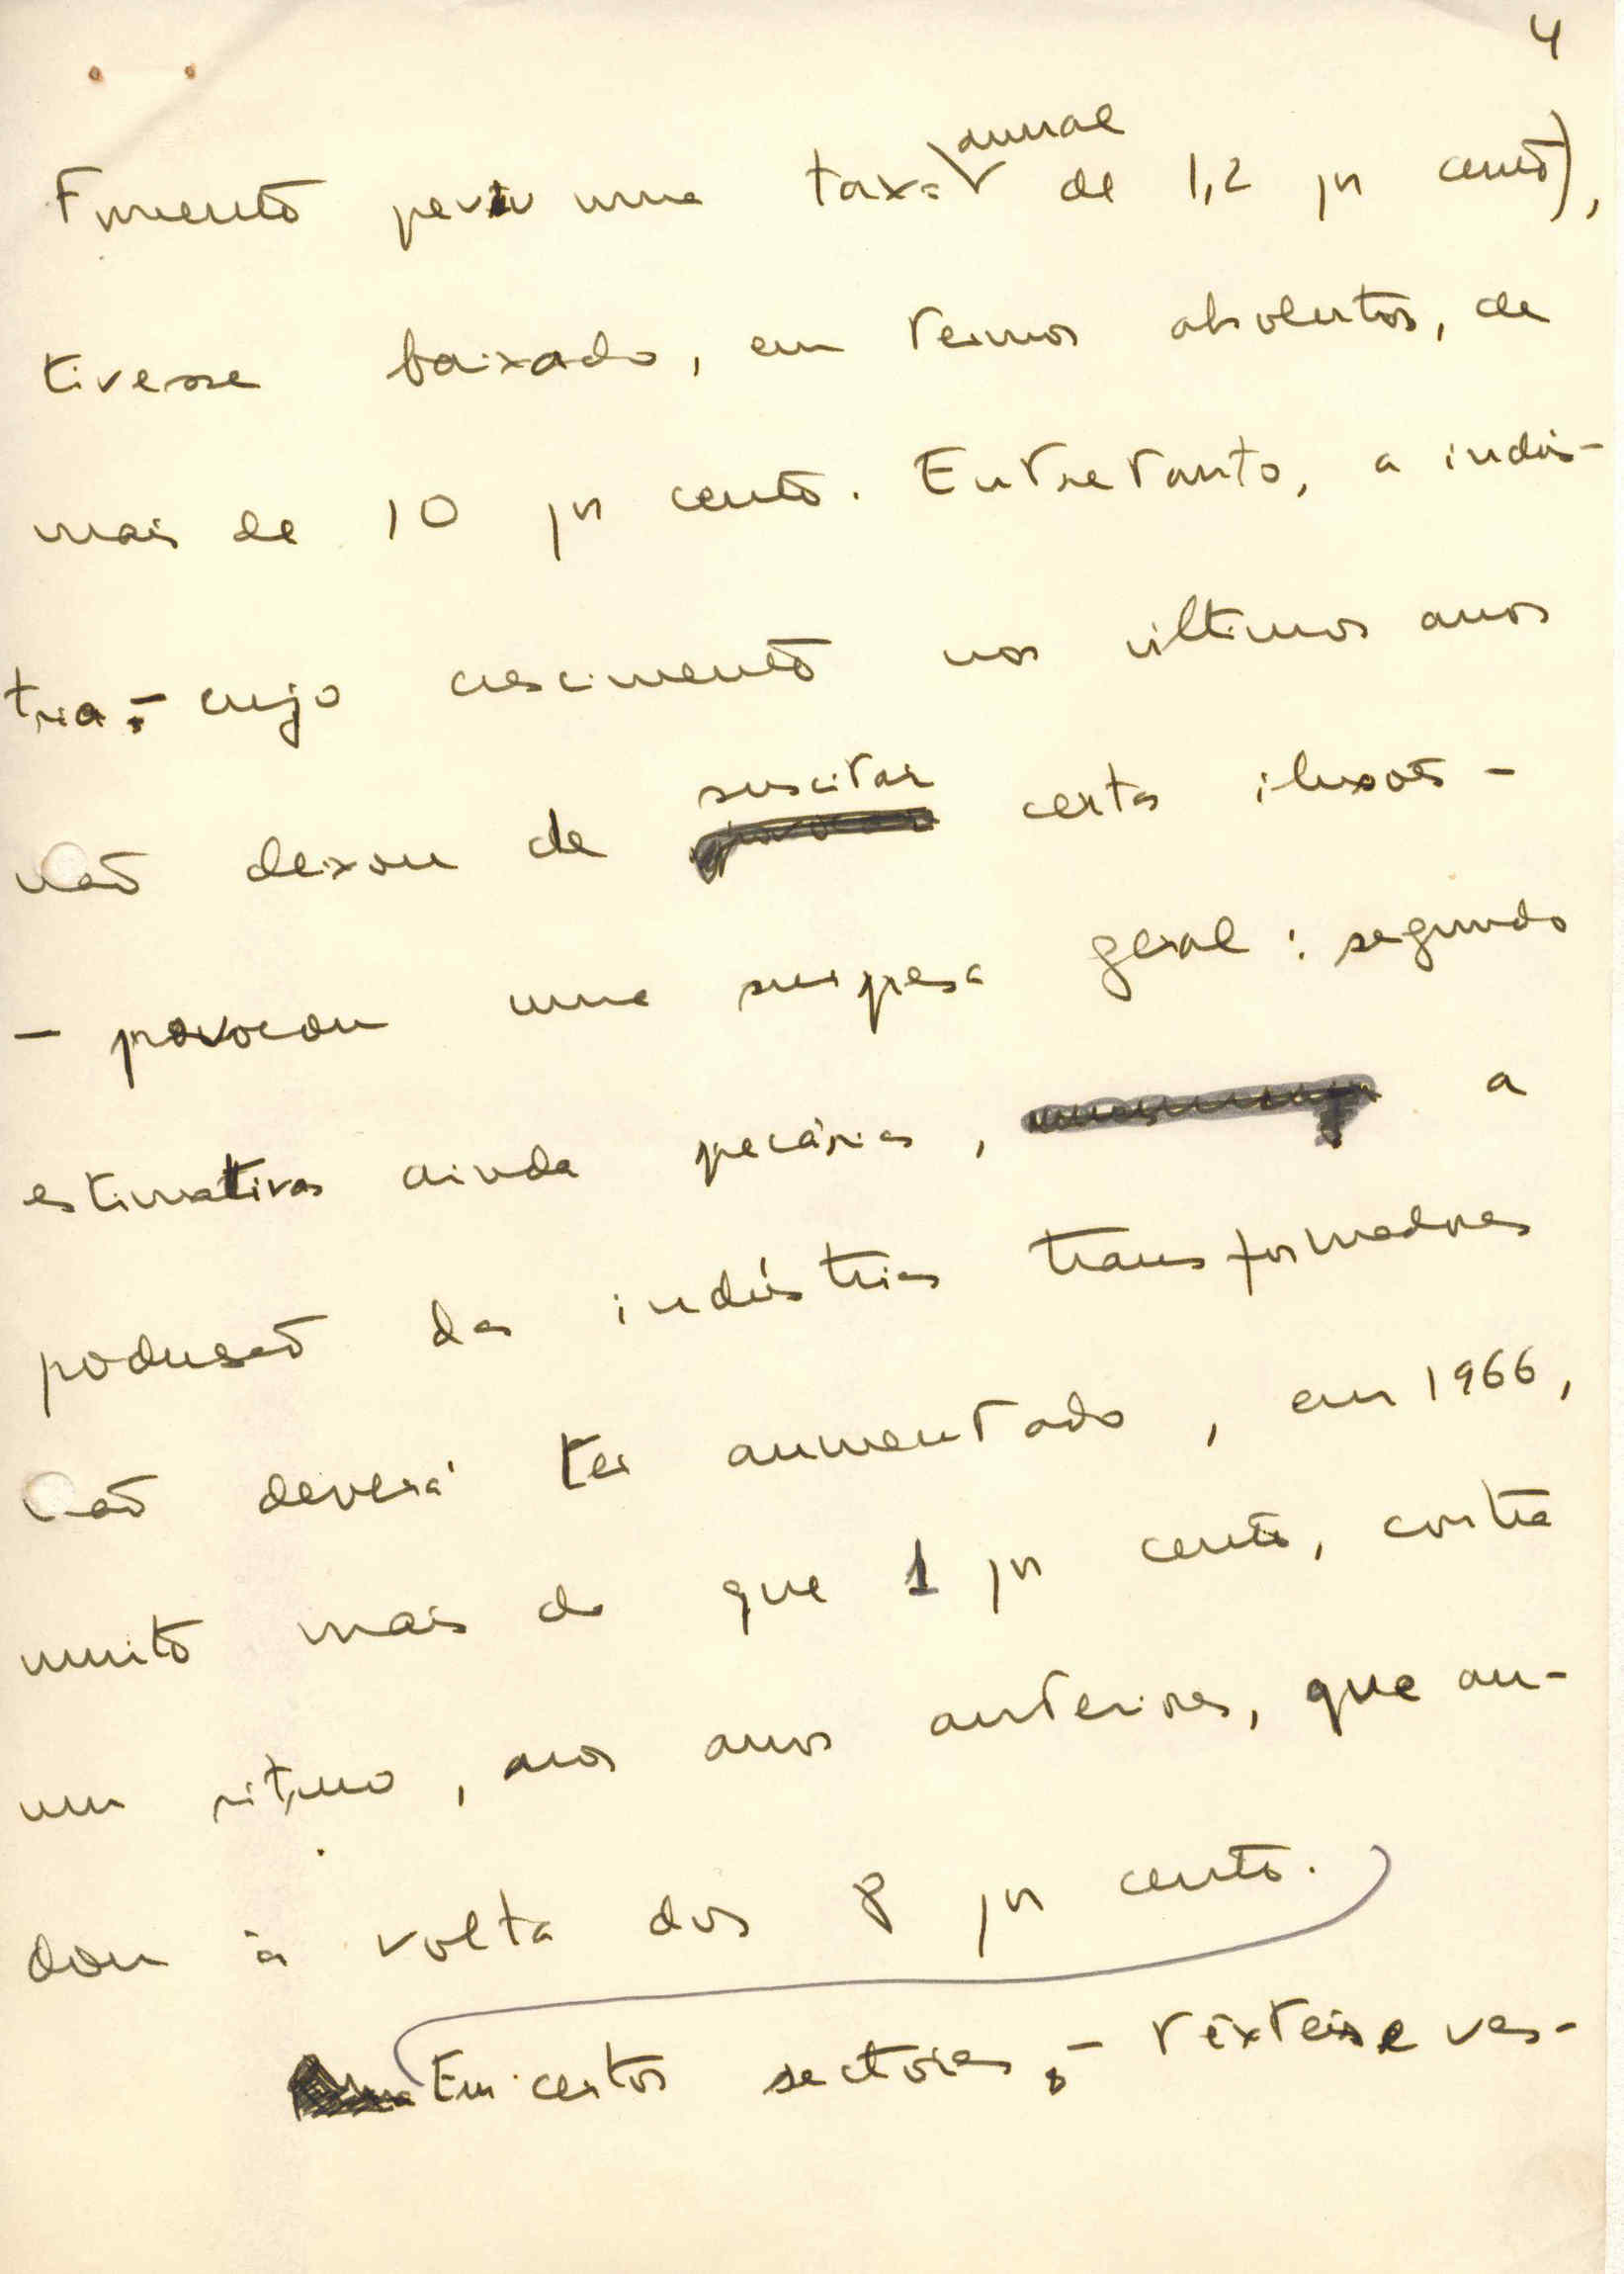 4
Fomento previu uma taxa anual de 1,2 por cento),
tivesse baixado, em termos absolutos, de
mais de 10 por cento. Entretanto, a indús-
tria, - cujo crescimento nos últimos anos
não deixou de suscitar certas ilusões -
- provocou uma surpresa geral: segundo
estimativas ainda precárias, a
produção das indústrias transformadoras
não deverá ter aumentado, em 1966,
muito mais do que 1 por cento, contra
um ritmo, nos anos anteriores, que an-
dou à volta dos 8 por cento.
Em certos sectores, - têxteis e ves-